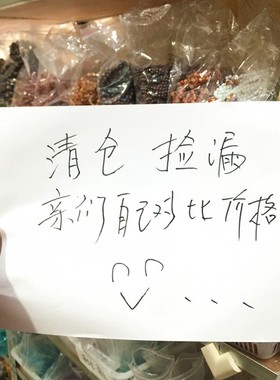 清仓 捡漏
亲们自己对比价格
...